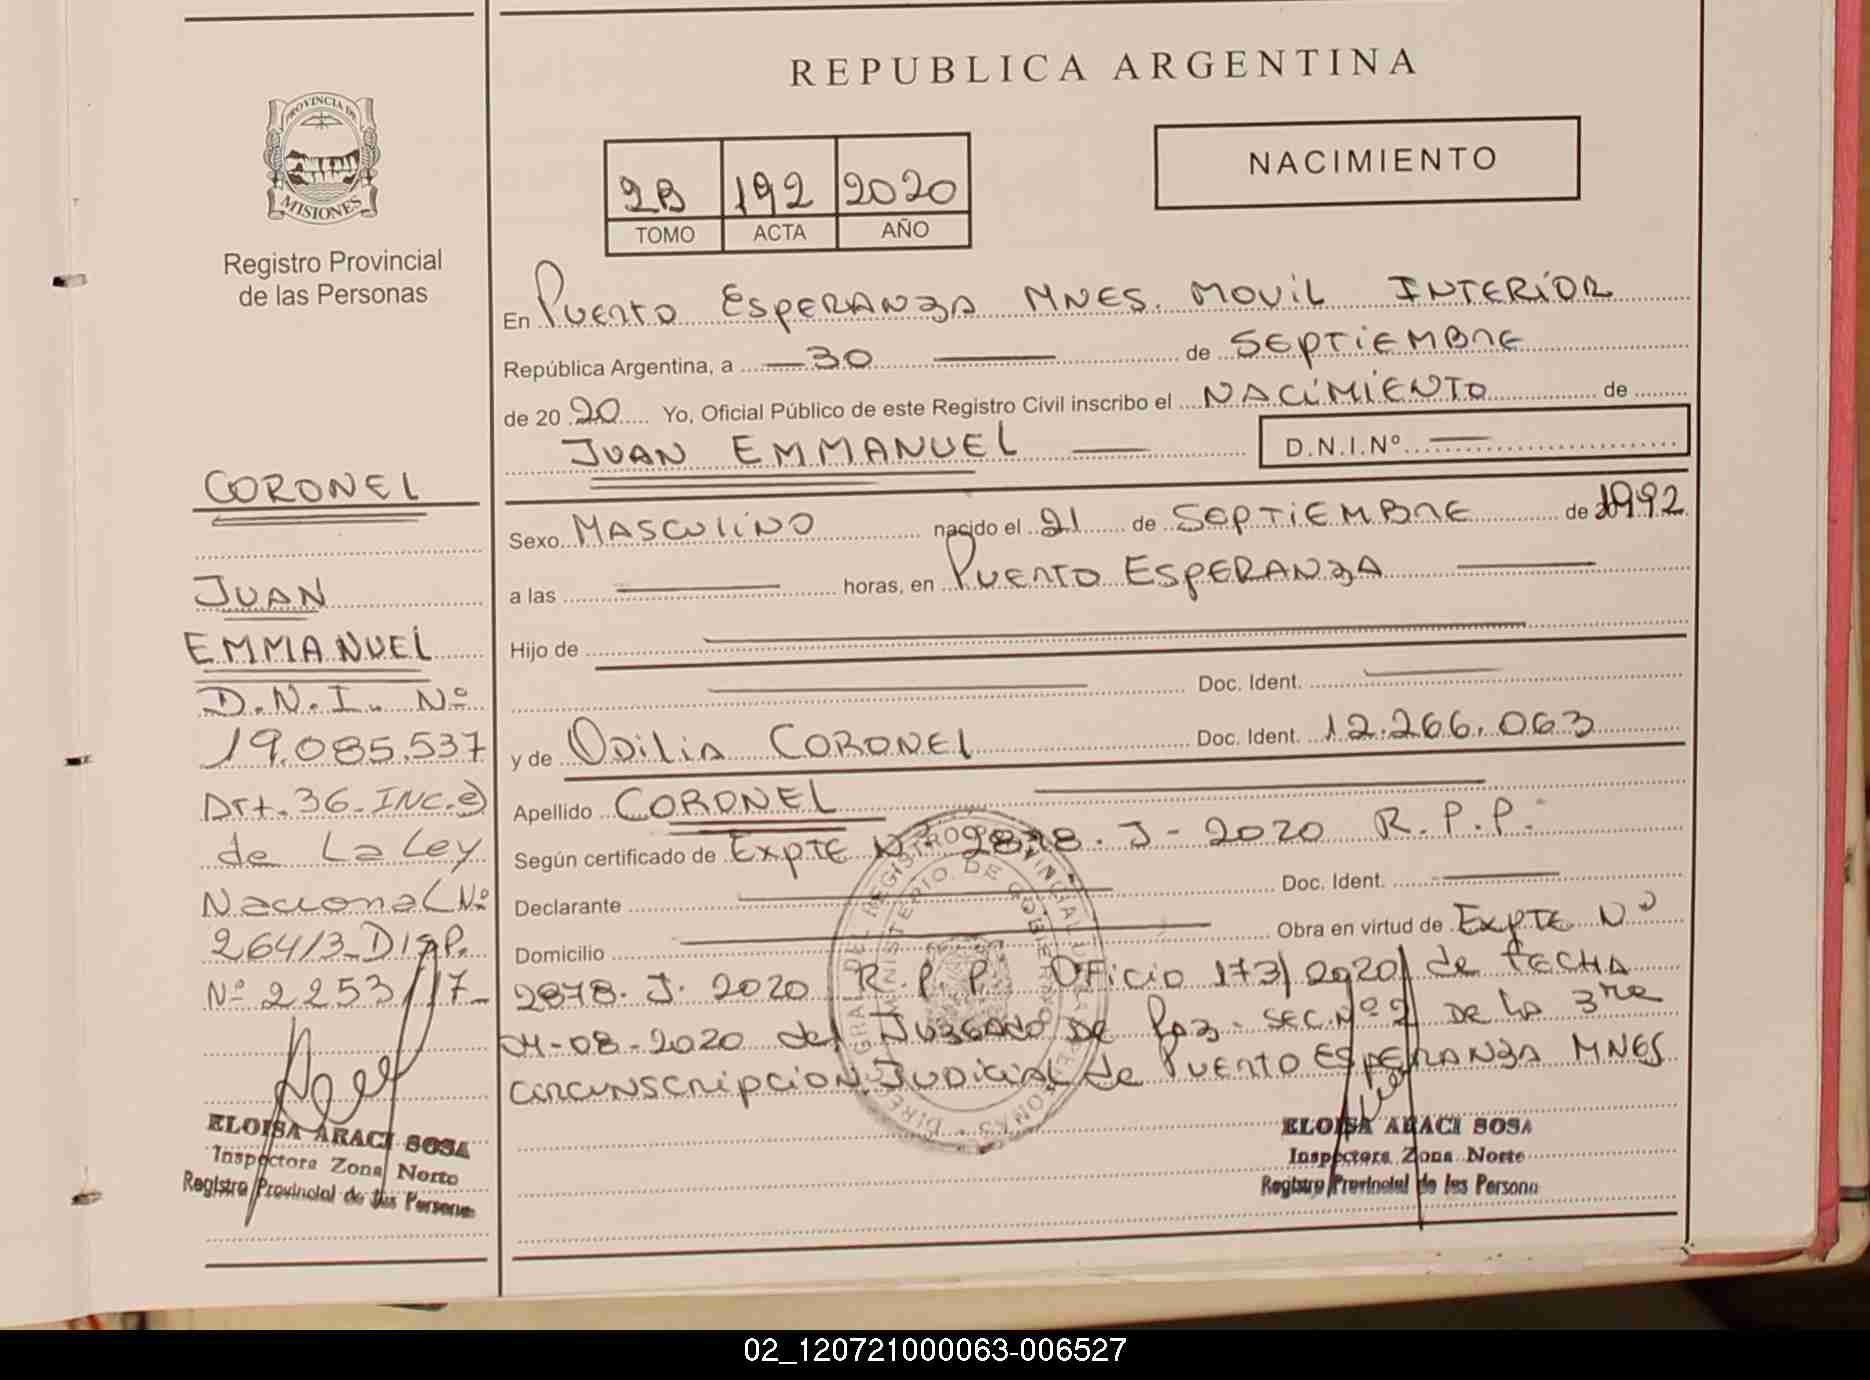 REPUBLICA ARGENTINA
NACIMIENTO
2B 192 2020
TOMO ACTA AÑO
PROVINCIA DE
MISIONES
Registro Provincial
de las Personas
CORONEL
JUAN
EMMANUEL
D.N.I. Nº
19.085.537
Art. 36. INC. e)
de La Ley
Nacional Nº
26413 DISP.
Nº 2253/17
ELOISA ARACI SOSA
Inspectora Zona Norte
Registro Provincial de las Persona
En PUERTO ESPERANZA MNES. MOVIL INTERIOR
República Argentina, a 30 de SEPTIEMBRE
de 2020 Yo, Oficial Público de este Registro Civil inscribo el NACIMIENTO de
JUAN EMMANUEL D.N.I.Nº
Sexo MASCULINO nacido el 21 de SEPTIEMBRE de 1992
a las horas, en PUERTO ESPERANZA
Hijo de
Doc. Ident.
y de ODILIA CORONEL Doc. Ident. 12.266.063
Apellido CORONEL
Según certificado de EXPTE Nº 2878. J - 2020 R.P.P.
Declarante Doc. Ident.
Domicilio Obra en virtud de EXPTE Nº
2878. J. 2020 R.P.P. OFICIO 173/2020 de FECHA
04-08-2020 del JUZGADO DE PAZ - SEC. Nº 2 DE LA 3ra
CIRCUNSCRIPCION JUDICIAL de PUERTO ESPERANZA MNES
ELOISA ARACI SOSA
Inspectora Zona Norte
Registro Provincial de las Persona
02_120721000063-006527